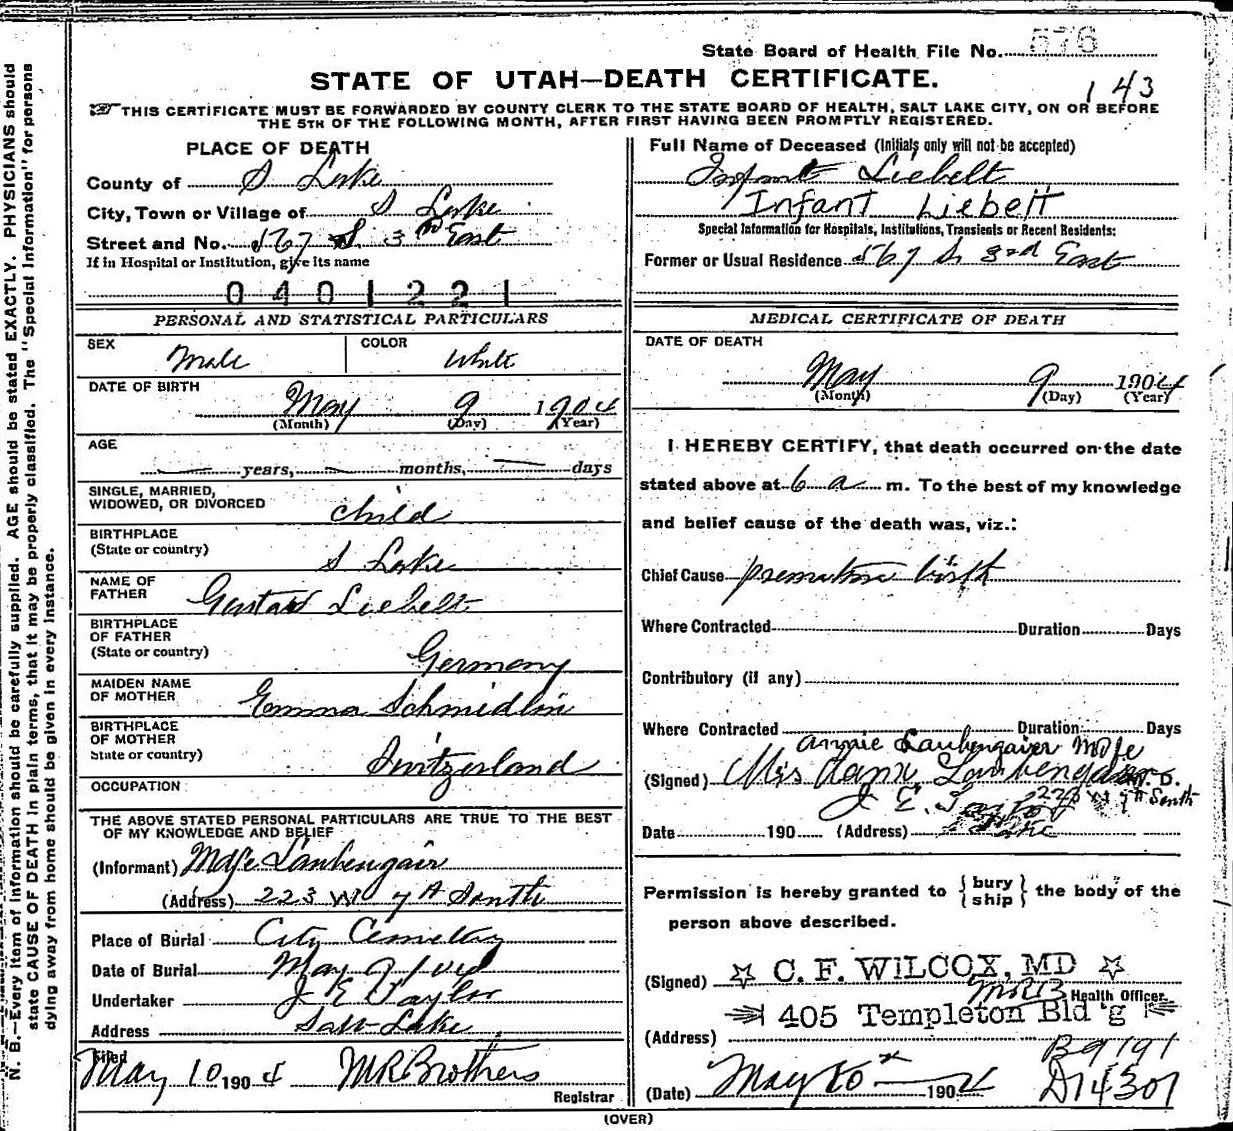 State Board of Health File No. 576
STATE OF UTAH—DEATH CERTIFICATE.
143
THIS CERTIFICATE MUST BE FORWARDED BY COUNTY CLERK TO THE STATE BOARD OF HEALTH, SALT LAKE CITY, ON OR BEFORE
THE 5TH OF THE FOLLOWING MONTH, AFTER FIRST HAVING BEEN PROMPTLY REGISTERED.
PLACE OF DEATH
County of S Lake
City, Town or Village of S Lake
Street and No. 567 S. 3rd East
If in Hospital or Institution, give its name
0401221
Full Name of Deceased (Initials only will not be accepted)
Infant Liebelt
Infant Liebelt
Special Information for Hospitals, Institutions, Transients or Recent Residents:
Former or Usual Residence 567 S. 3rd East
PERSONAL AND STATISTICAL PARTICULARS
SEX Male
COLOR White
DATE OF BIRTH
May 9 1904
(Month) (Day) (Year)
AGE
years, months, days
SINGLE, MARRIED,
WIDOWED, OR DIVORCED child
BIRTHPLACE
(State or country) S Lake
NAME OF
FATHER Gustav Liebelt
BIRTHPLACE
OF FATHER
(State or country) Germany
MAIDEN NAME
OF MOTHER Emma Schmidlin
BIRTHPLACE
OF MOTHER
State or country) Switzerland
OCCUPATION
THE ABOVE STATED PERSONAL PARTICULARS ARE TRUE TO THE BEST
OF MY KNOWLEDGE AND BELIEF
(Informant) Mdfe Laubengair
(Address) 223 W 7th South
Place of Burial City Cemetry
Date of Burial May 9 1904
Undertaker J E Taylor
Address Salt Lake
Filed
May 10 1904 M R Brothers
Registrar
MEDICAL CERTIFICATE OF DEATH
DATE OF DEATH
May 9 1904
(Month) (Day) (Year)
I HEREBY CERTIFY, that death occurred on the date
stated above at 6 a m. To the best of my knowledge
and belief cause of the death was, viz.:
Chief Cause premature birth
Where Contracted Duration Days
Contributory (if any)
Where Contracted Duration Days
Annie Laubengaier Mdfe
(Signed) Mrs Laubengaier M. D.
J. E. 223 W 7th South
Date 190 (Address)
Permission is hereby granted to { bury ship } the body of the
person above described.
(Signed) C. F. WILCOX, MD
MRB Health Officer
405 Templeton Bld'g
(Address)
B9191
(Date) May 10 1904 D14307
(OVER)
N. B.—Every item of information should be carefully supplied. AGE should be stated EXACTLY. PHYSICIANS should
state CAUSE OF DEATH in plain terms, that it may be properly classified. The "Special Information" for persons
dying away from home should be given in every instance.